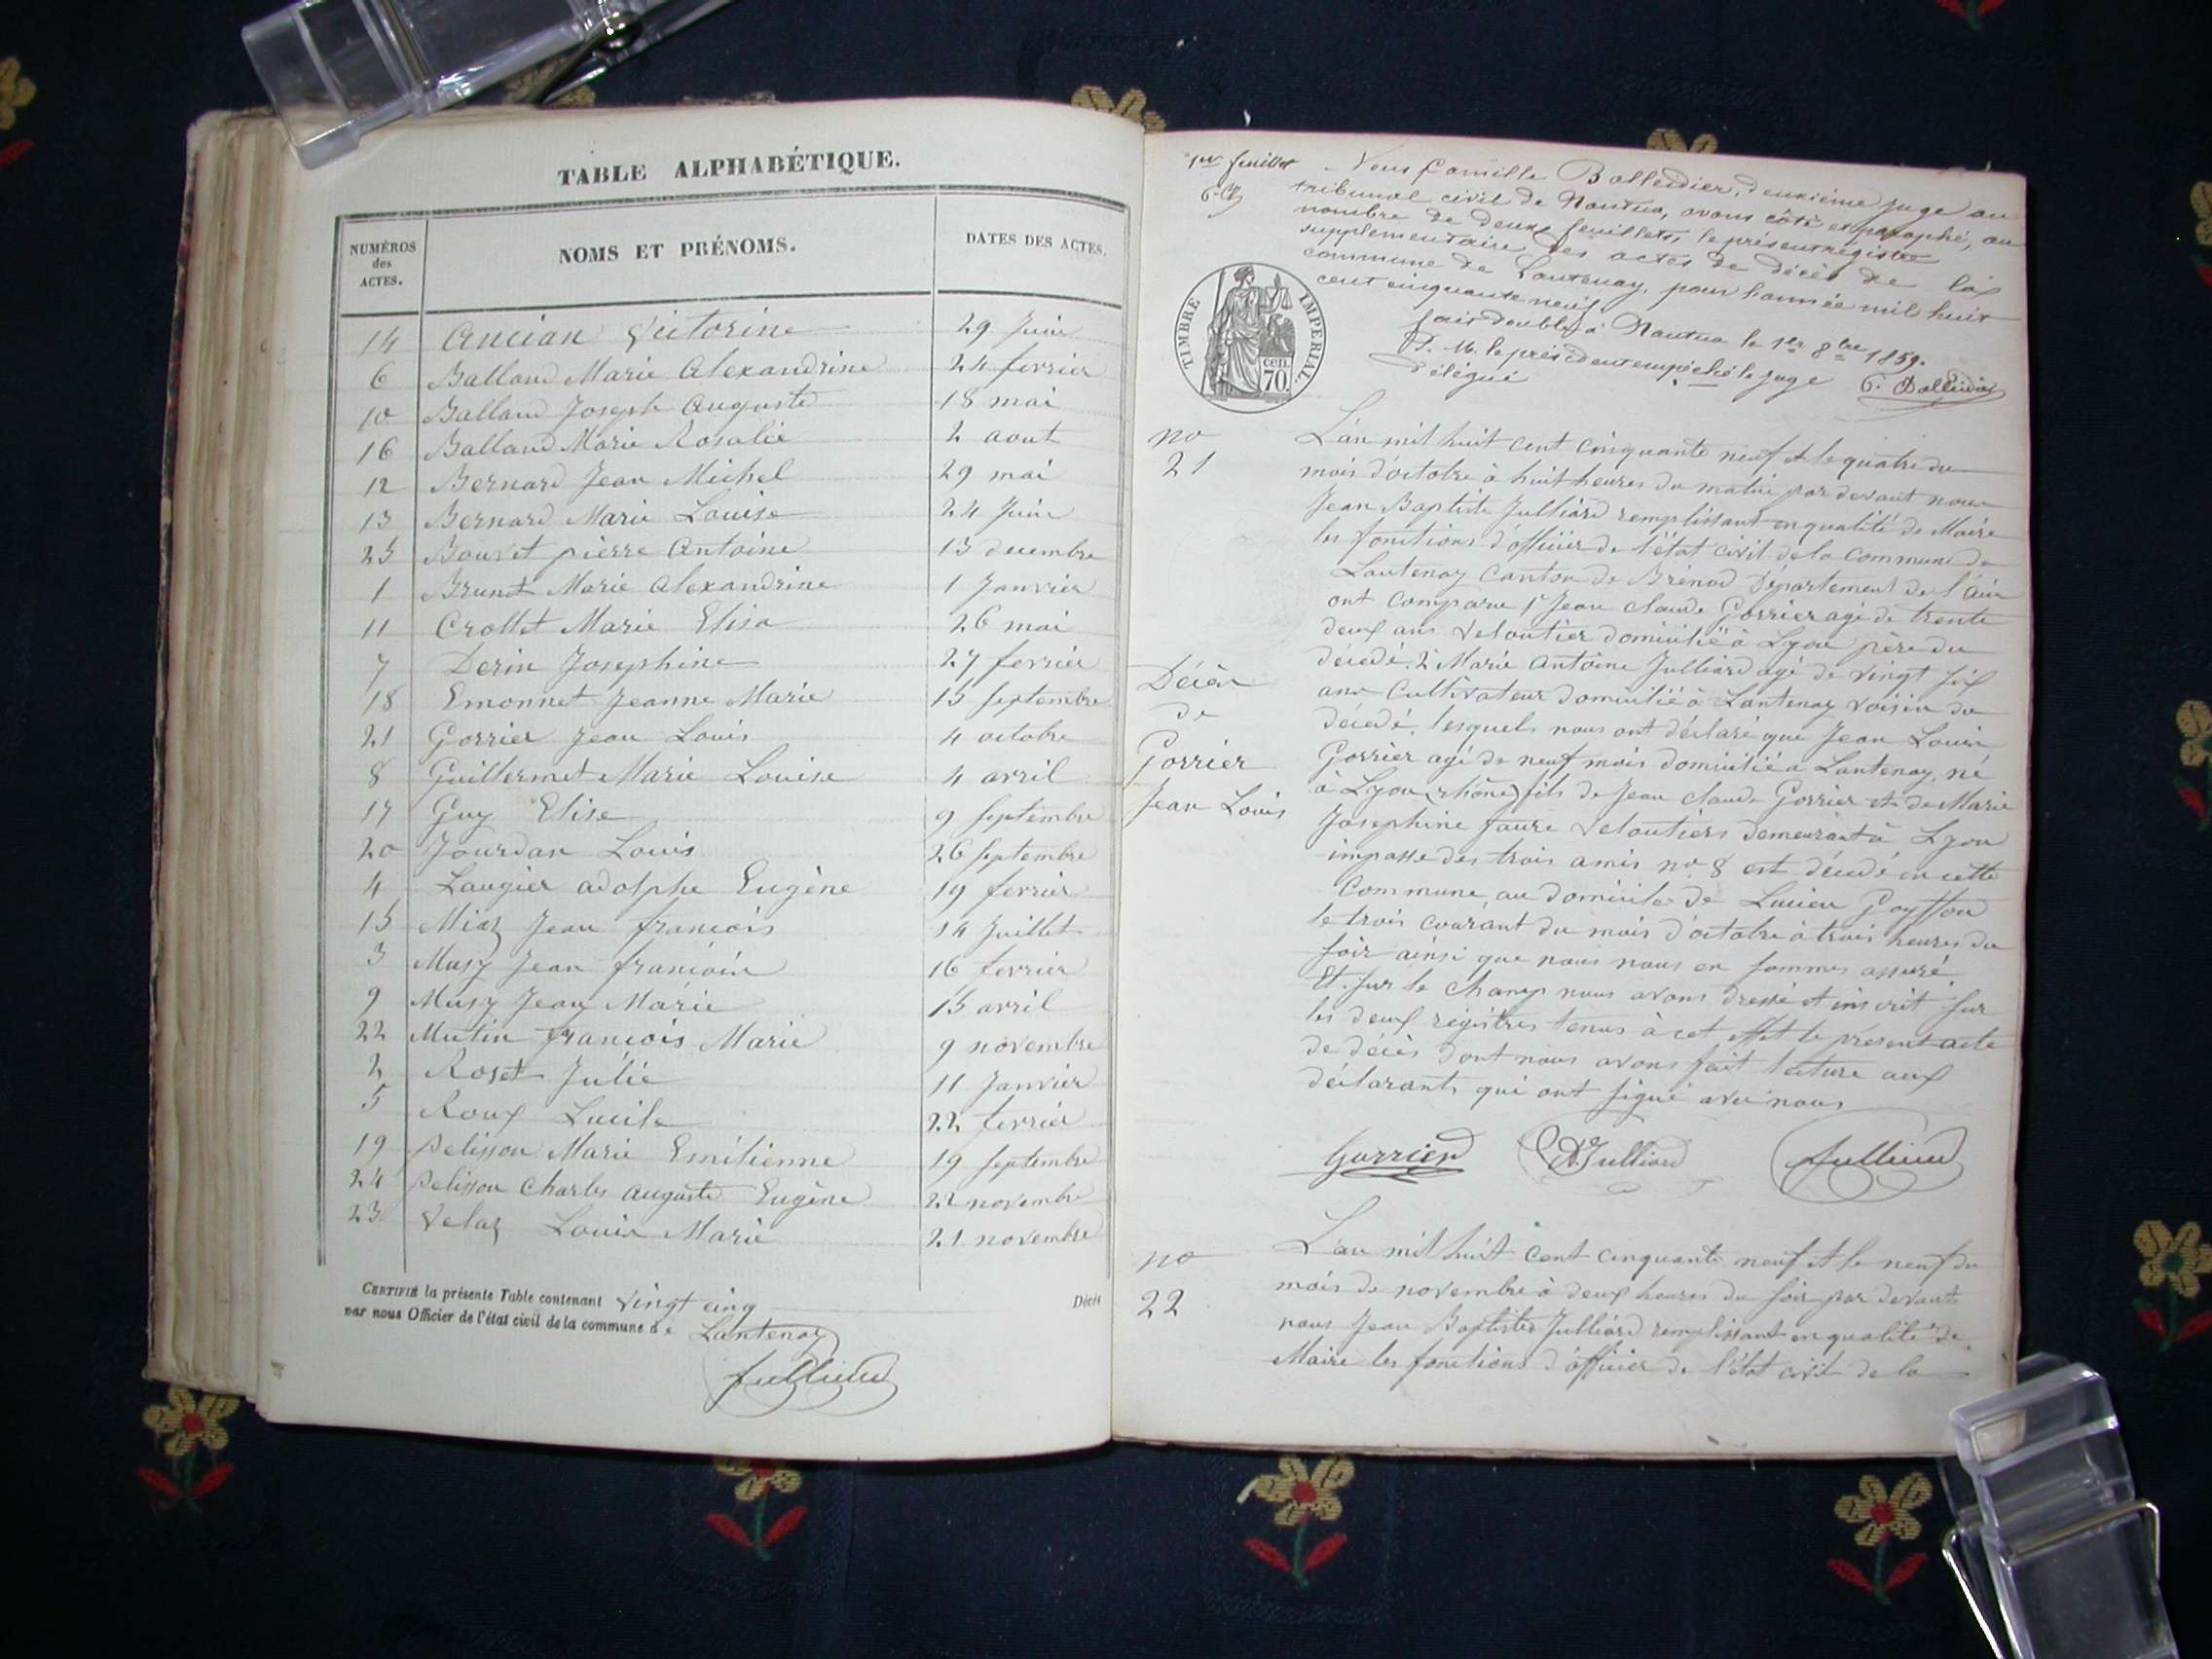 TABLE ALPHABÉTIQUE.
NUMÉROS des ACTES. NOMS ET PRÉNOMS. DATES DES ACTES.
14 Ancian Victorine 29 Juin
6 Balland Marie Alexandrine 24 fevrier
10 Balland Joseph Auguste 18 mai
16 Balland Marie Rosalie 2 aout
12 Bernard Jean Michel 29 mai
13 Bernard Marie Louise 24 Juin
25 Bouvet pierre Antoine 13 decembre
1 Brunet Marie Alexandrine 1 Janvier
11 Crollet Marie Elisa 26 mai
7 Derin Josephine 27 fevrier
18 Emonnet Jeanne Marie 15 Septembre
21 Gorrier Jean Louis 4 octobre
8 Guillermet Marie Louise 4 avril
17 Guy Elise 9 Septembre
20 Jourdan Louis 26 Septembre
4 Laugier adolphe Eugène 19 fevrier
15 Jean françois 14 Juillet
3 Musy Jean françois 16 fevrier
9 Musy Jean Marie 15 avril
22 Mutin françois Marie 9 novembre
2 Roset Julie 11 Janvier
5 Roux Lucile 22 fevrier
19 Pelisson Marie Emilienne 19 Septembre
24 Pelisson Charles Auguste Eugène 22 novembre
23 Velaz Louis Marie 21 novembre
CERTIFIÉ la présente Table contenant vingt cinq Décès
par nous Officier de l'état civil de la commune de Lantenay
Julliard
1er feuillet
C. B.
Nous Camille Bolleidier, deuxième juge au
tribunal civil de Nantua, avons côté et paraphé, au
nombre de deux feuillets, le présent régistre
supplémentaire des actes de décès de la
commune de Lantenay, pour l'année mil huit
cent cinquante neuf
fait double à Nantua le 1er 8bre 1859.
P. M. le président empêché le juge
délégué C. Bolleidier
TIMBRE IMPERIAL.
70 CEN.
no
21
Décès
de
Gorrier
Jean Louis
L'an mil huit cent cinquante neuf et le quatre du
mois d'octobre à huit heures du matin par devant nous
Jean Baptiste Julliard remplissant en qualité de Maire
les fonctions d'officier de l'état civil de la commune de
Lantenay Canton de Brénod Département de l'ain
ont comparu 1° Jean claude Gorrier agé de trente
deux ans Veloutier domicilié à Lyon père du
décédé. 2° Marie Antoine Julliard agé de vingt six
ans Cultivateur domicilié à Lantenay voisin du
décédé. lesquels nous ont déclaré que Jean Louis
Gorrier agé de neuf mois domicilié a Lantenay, né
à Lyon (rhône) fils de Jean claude Gorrier et de Marie
Josephine faure Veloutiers demeurant à Lyon
impasse des trois amis no 8 est décédé en cette
Commune, au domicile de Lucien Goyffon
le trois courant du mois d'octobre à trois heures du
soir ainsi que nous nous en sommes assuré.
Et sur le champ nous avons dressé et inscrit sur
les deux régistres tenus à cet effet le présent acte
de décès dont nous avons fait lecture aux
déclarants qui ont signé avec nous
Gorrier A. Julliard Julliard
no
22
L'an mil huit cent cinquante neuf et le neuf du
mois de novembre à deux heures du soir par devant
nous Jean Baptiste Julliard remplissant en qualité de
Maire les fonctions d'officier de l'état civil de la